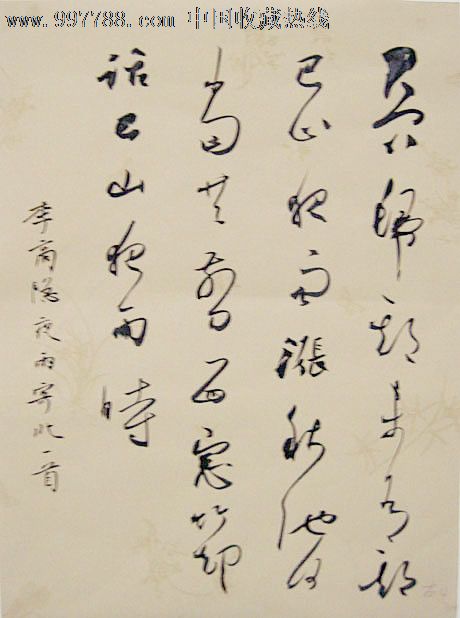 www.997788.com 中国收藏热线
君問歸期未有期
巴山夜雨漲秋池何
當共剪西窗燭却
話巴山夜雨時
李商隱夜雨寄北一首